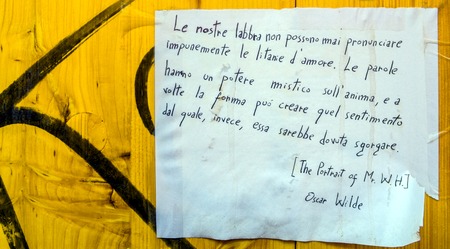 Le nostre labbra non possono mai pronunciare
impunemente le litanie d'amore. Le parole
hanno un potere mistico sull'anima, e a
volte la forma può creare quel sentimento
dal quale, invece, essa sarebbe dovuta sgorgare.
[The Portrait of Mr. W.H.]
Oscar Wilde